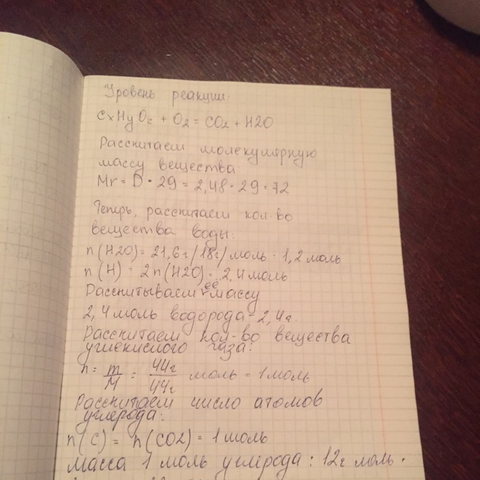 Уровень реакции:
CxHyOz + O2 = CO2 + H2O
Рассчитаем молекулярную
массу вещества
Mr = D · 29 = 2,48 · 29 = 72
Теперь, рассчитаем кол-во
вещества воды:
n(H2O) = 21,6г/18г/моль = 1,2 моль
n(H) = 2n(H2O) = 2,4 моль
Рассчитываем массу
2,4 моль водорода = 2,4г.
Рассчитаем кол-во вещества
углекислого газа:
n = m/M = 44г/44г моль = 1 моль
Рассчитаем число атомов
углерода:
n(C) = n(CO2) = 1 моль
Масса 1 моль углерода: 12г моль.